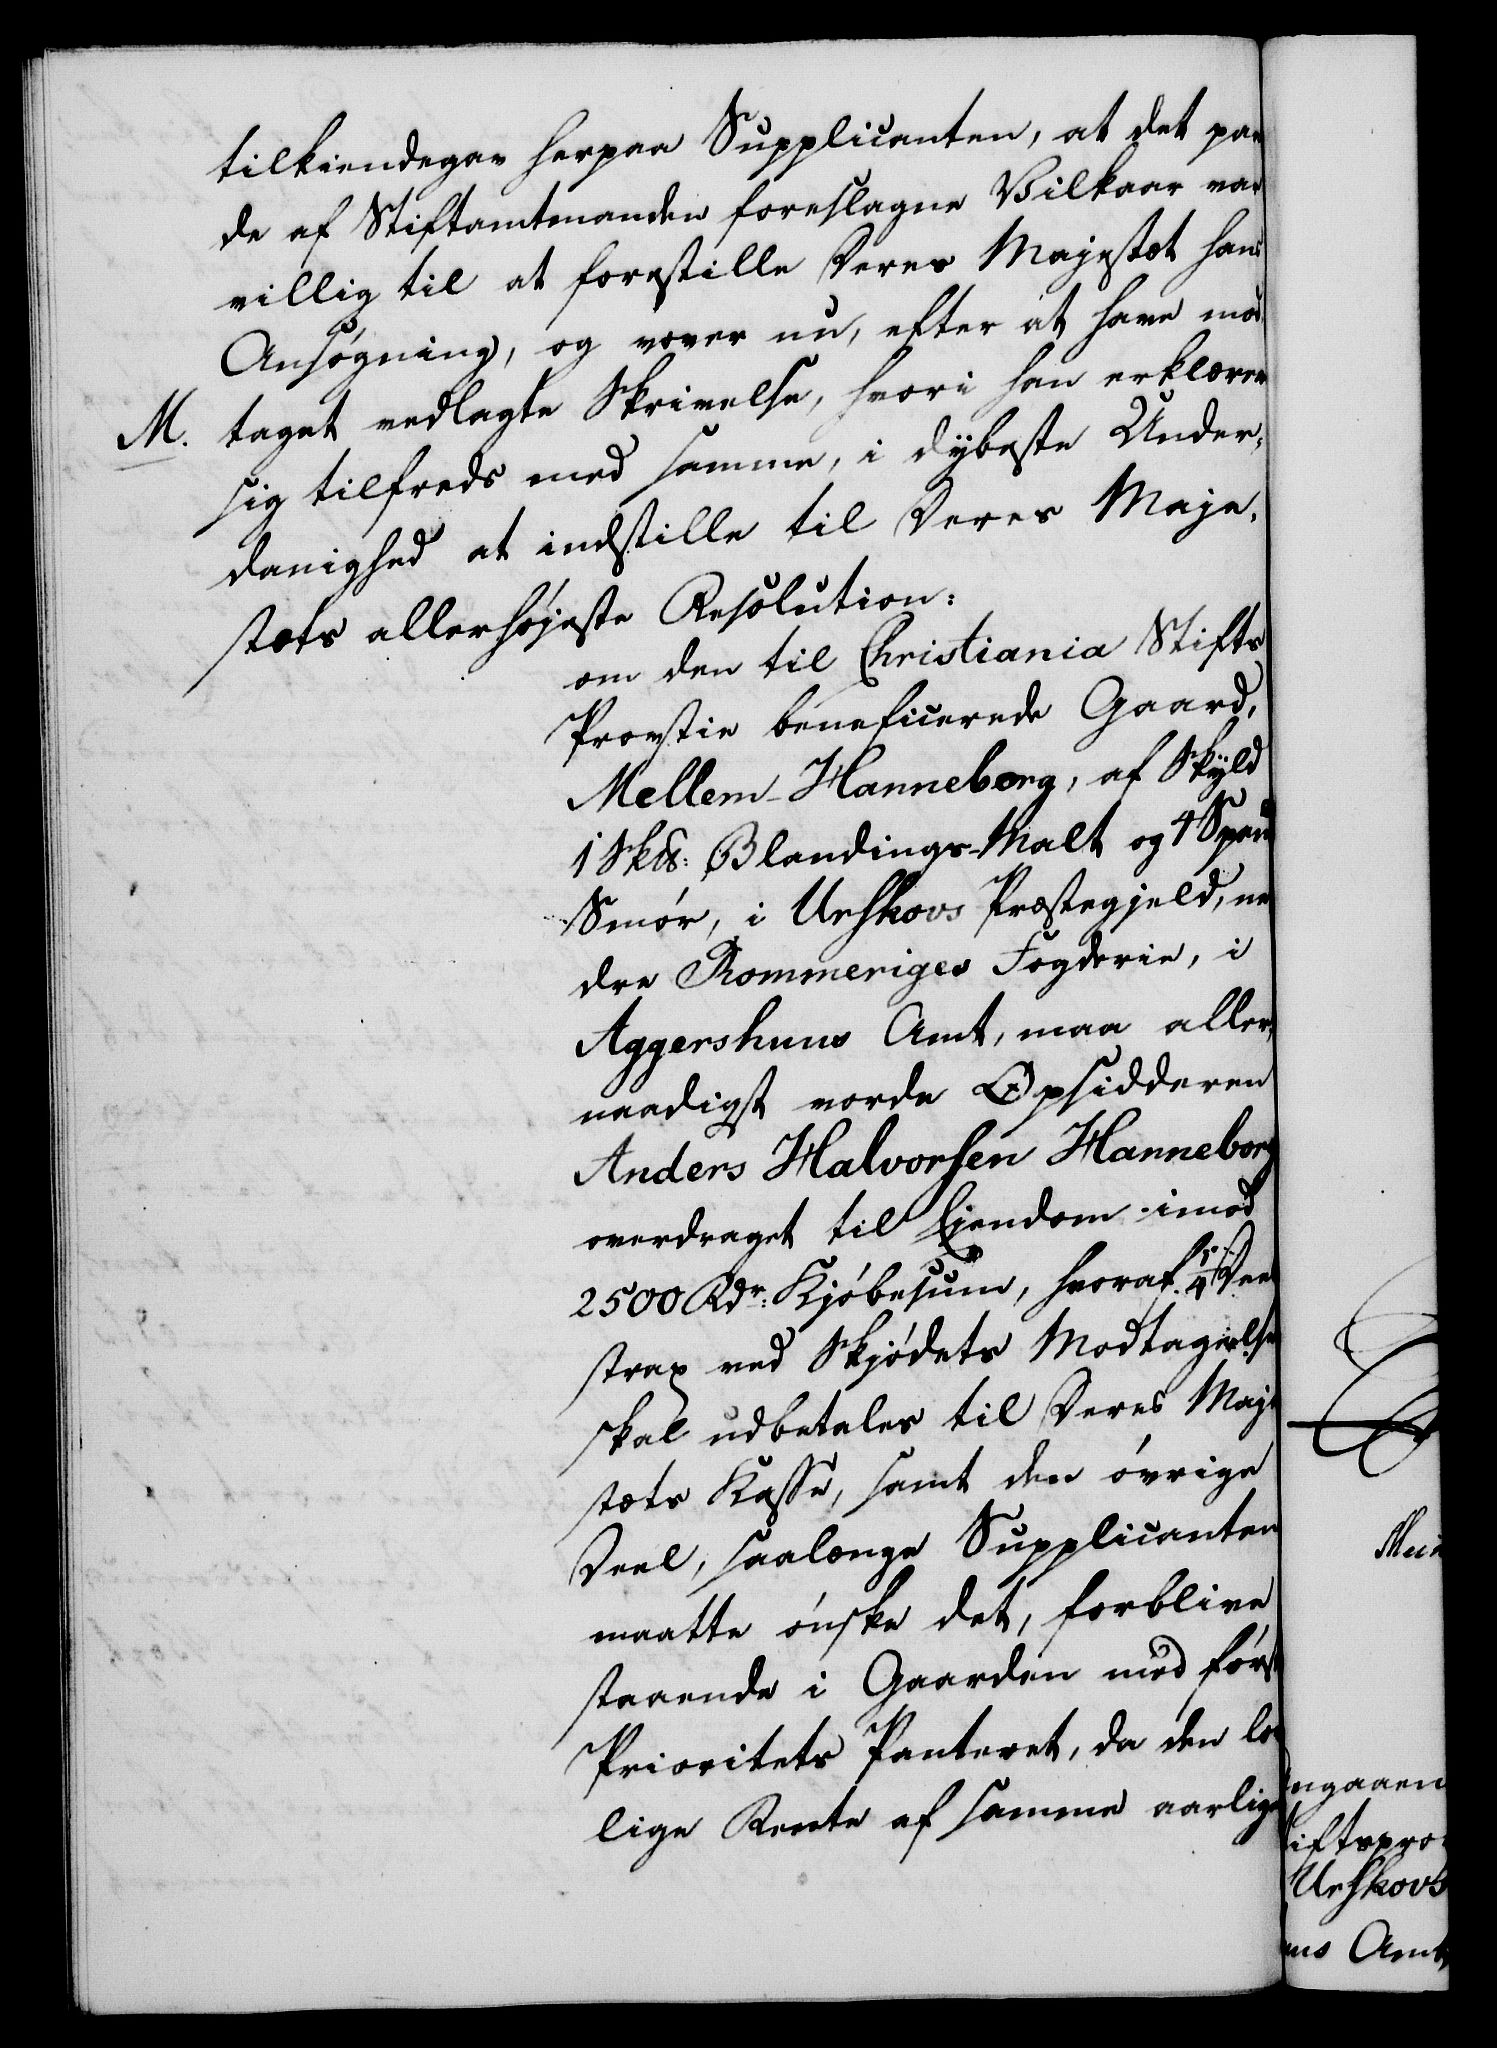 tilkiendegav herpaa Supplicanten, at det paa
de af Stiftamtmanden foreslagne Vilkaar var
villig til at forestille Deres Majestæt hans
Ansøgning, og vover nu, efter at have mod-
M. taget vedlagte Skrivelse, hvori han erklærer
sig tilfreds med samme, i dybeste Under-
danighed at indstille til Deres Maje-
stæts allerhøjeste Resolution:
om den til Christiania Stifts
Provstie beneficerede Gaard,
Mellem-Hanneborg, af Skyld
1 Skd: Blandings-Malt og 4 Spand
Smør, i Urskovs Præstegjeld, ne
dre Rommeriges Fogderie, i
Aggershuus Amt, maa aller-
naadigst vorde Opsidderen
Anders Halvorsen Hanneborg
overdraget til Ejendom imod
2500 Rdr: Kjøbesum, hvoraf 1/4 Deel
strax ved Skjødets Modtagelse
skal udbetales til Deres Maje
stæts Kasse, samt den øvrige
Deel, saalænge Supplicanten
maatte ønske det, forblive
staaende i Gaarden med først
Prioritets Panteret, da den lo-
lige Rente af samme aarlig
ngaaen
iftspro-
Urskovs
uus Amt,